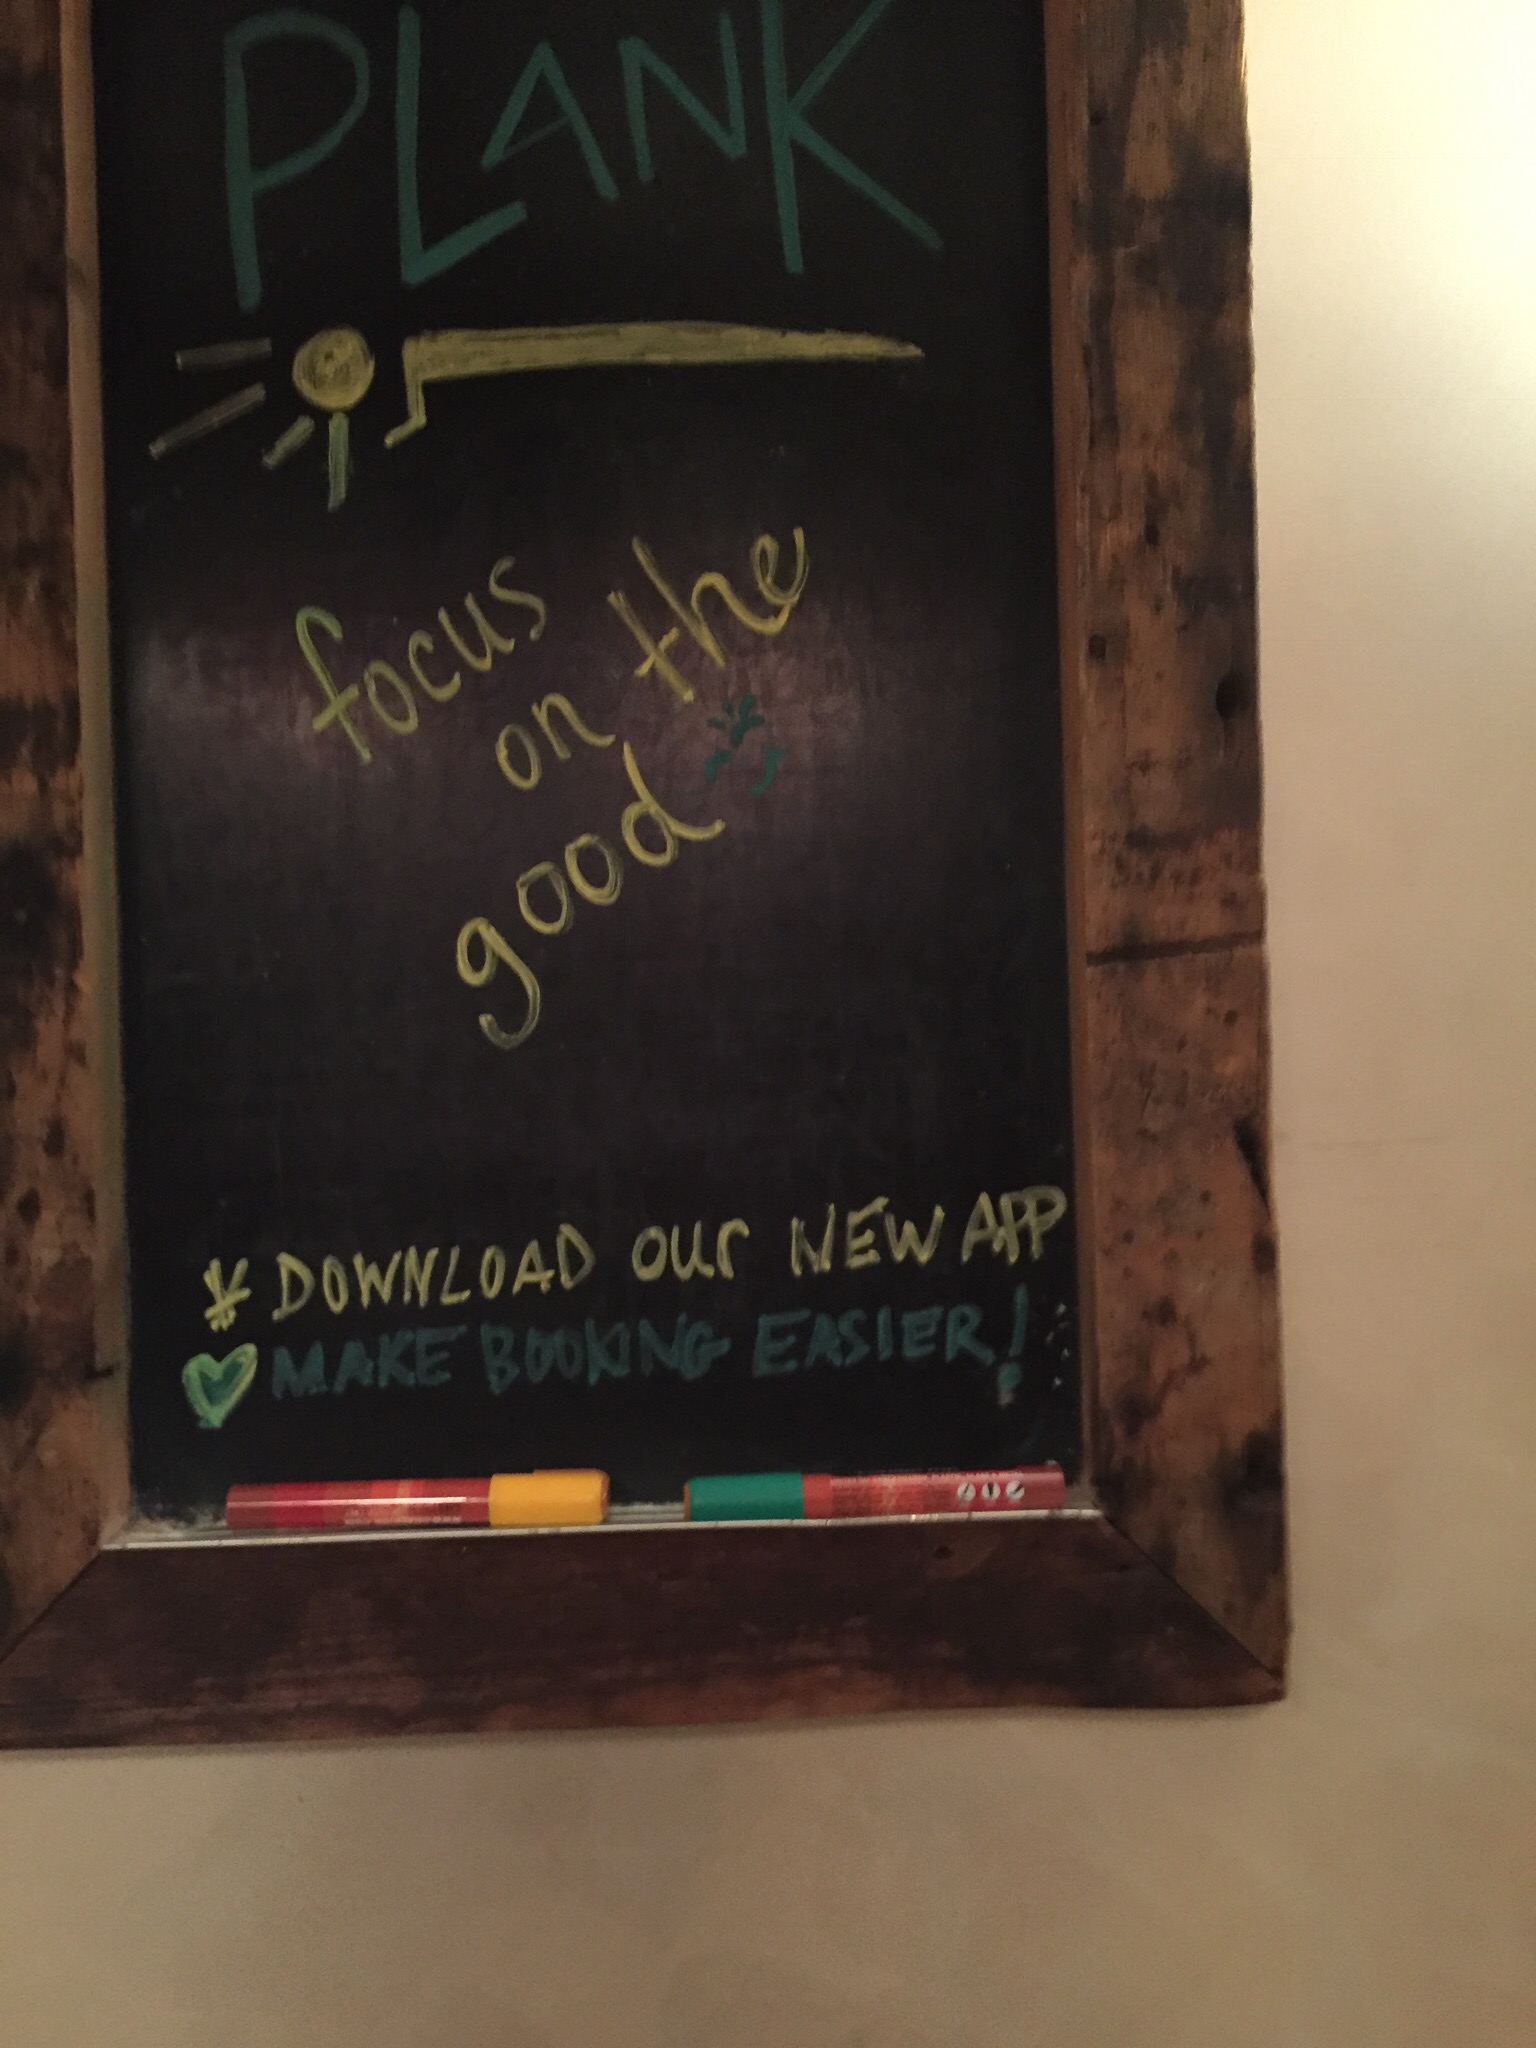 PLANK
focus
on the
good
DOWNLOAD our NEW APP
MAKE BOOKING EASIER!